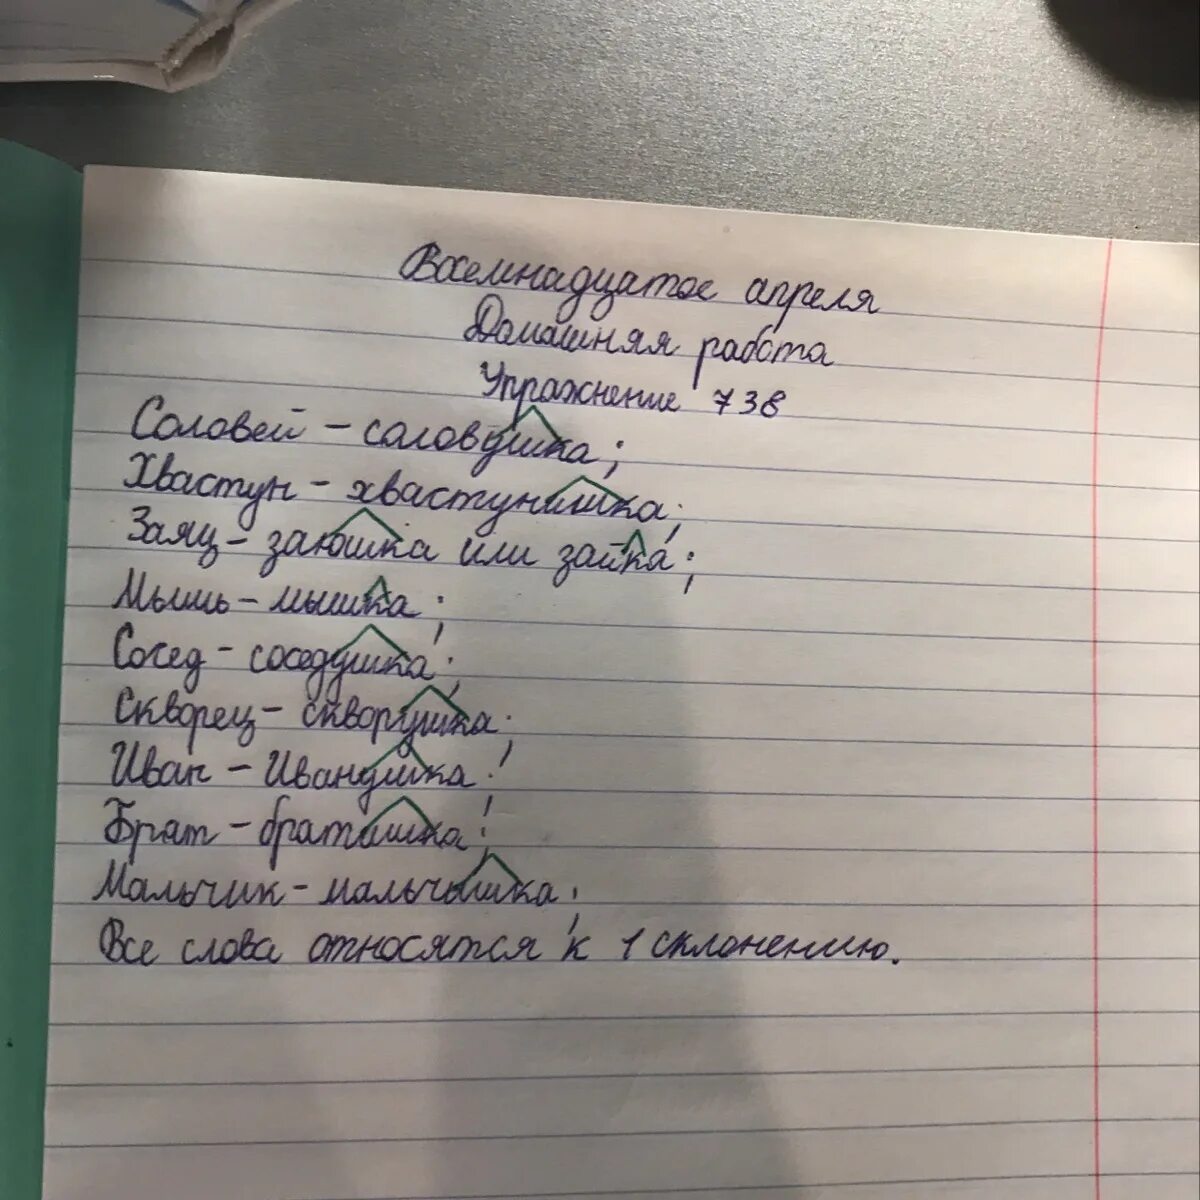 Восемнадцатое апреля
Домашняя работа
Упражнение 738
Соловей - соловушка;
Хвастун - хвастунишка;
Заяц - заюшка или зайка;
Мышь - мышка;
Сосед - соседушка;
Скворец - скворушка;
Иван - Иванушка;
Брат - братишка;
Мальчик - мальчишка;
Все слова относятся к 1 склонению.